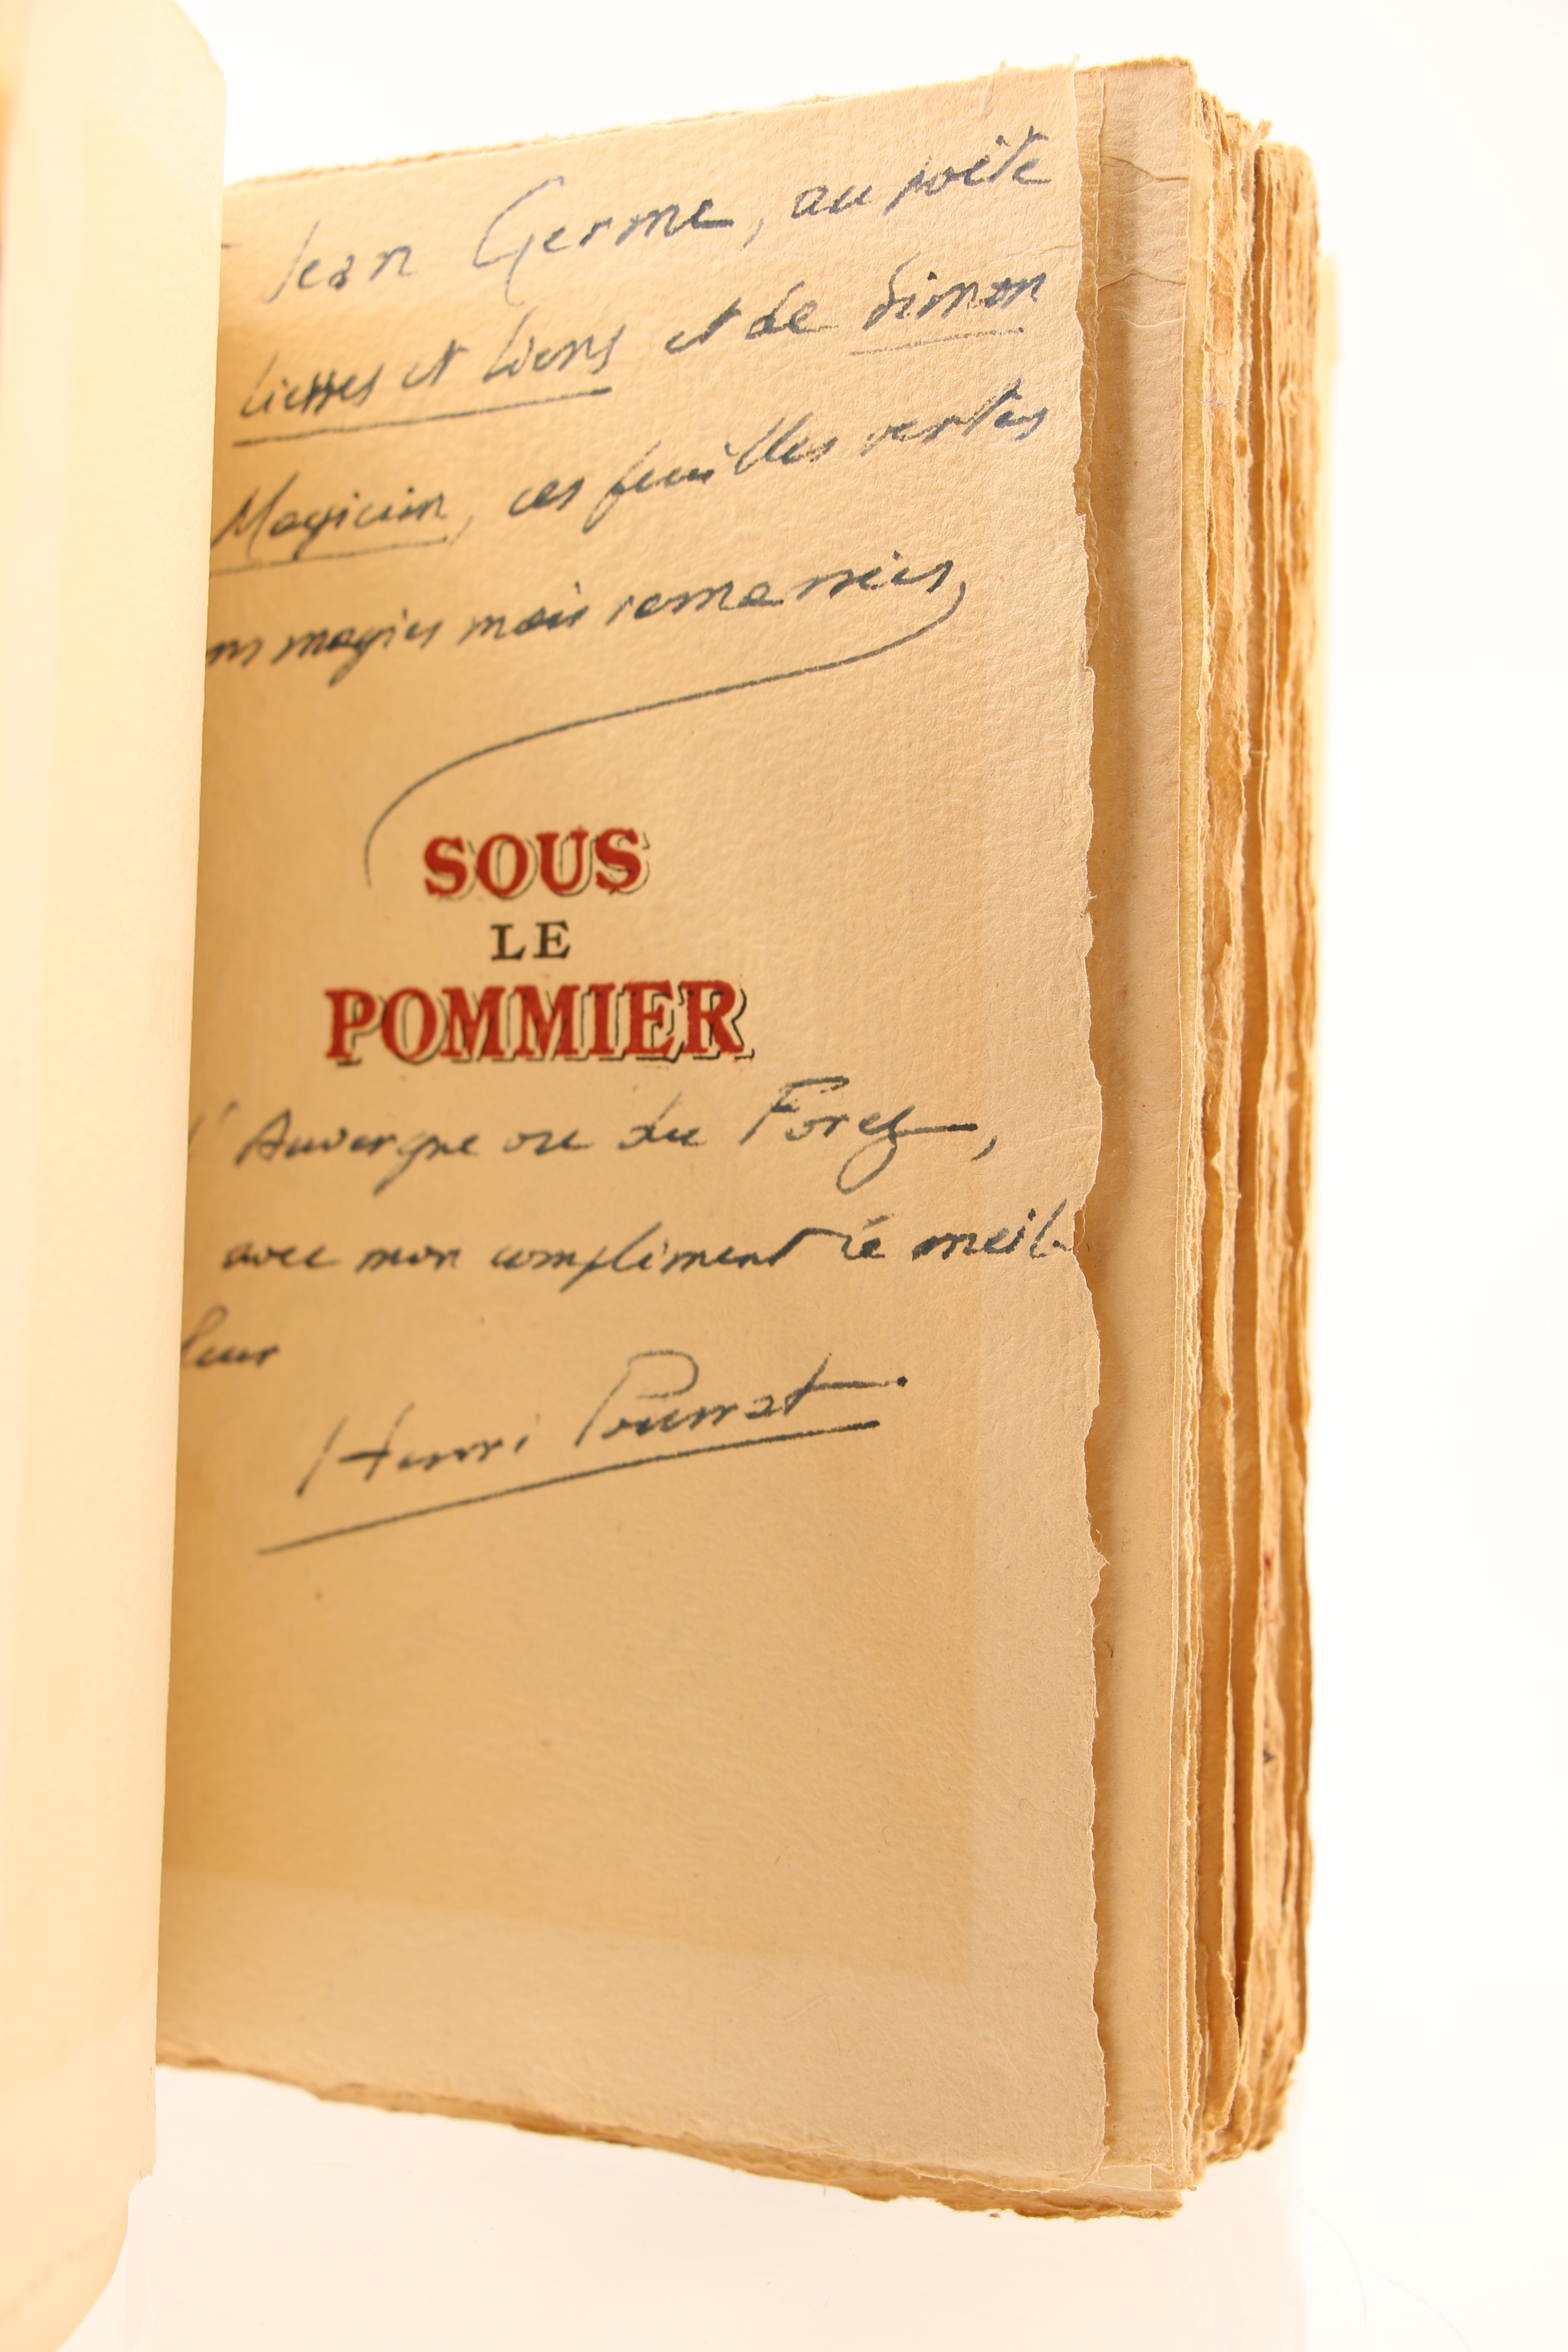 Jean Germe, au poète
Liesses et Liens et de Simon
Magicien, ces feuilles vertes
magies mais romancées,
SOUS
LE
POMMIER
l'Auvergne ou du Forez,
avec mon compliment le meil-
leur
Henri Pourrat.